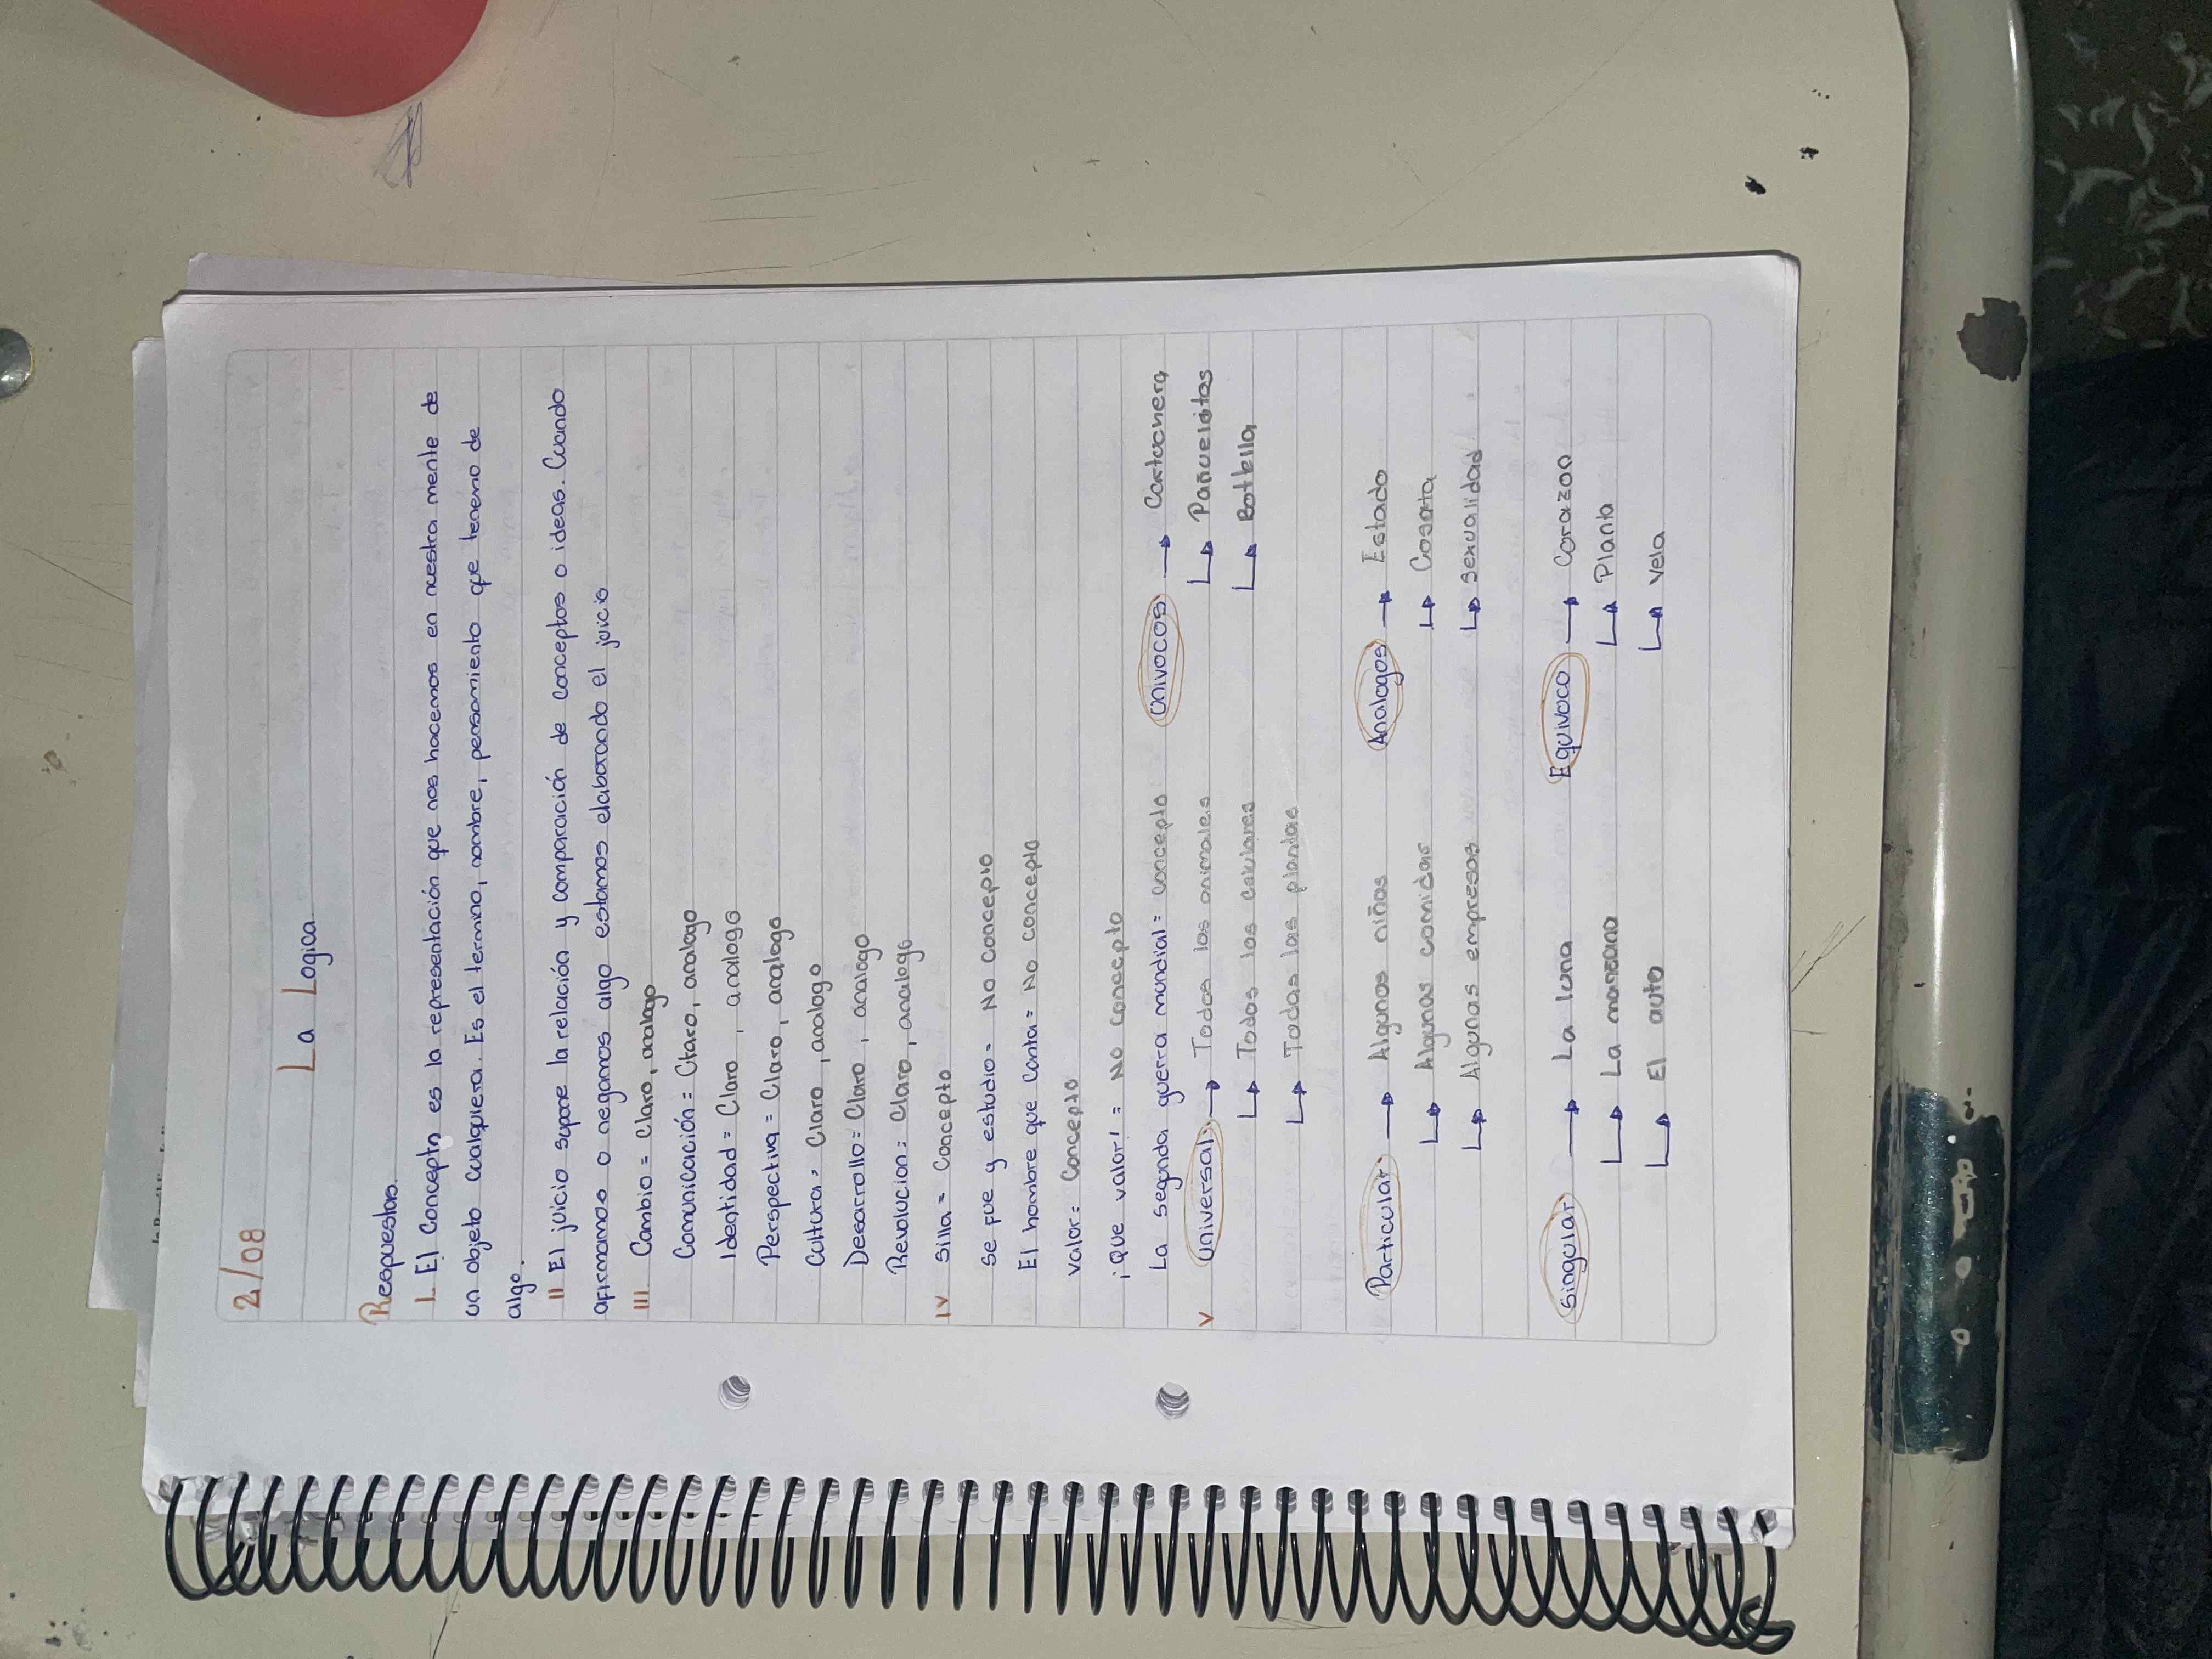 2/08
La Logica
Respuestas
I El Concepto es la representación que nos hacemos en nuestra mente de
un objeto cualquiera. Es el termino, nombre, pensamiento que tenemo de
algo.
II El juicio supone la relación y comparación de conceptos o ideas. Cuando
afirmamos o negamos algo estamos elaborando el juicio
III Cambio = Claro, analogo
Comunicación = Claro, analogo
Identidad = Claro, analogo
Perspectiva = Claro, analogo
Cultura = Claro, analogo
Desarrollo = Claro, analogo
Revolucion = Claro, analogo
IV Silla = Concepto
Se fue y estudio = No concepto
El hombre que canta = No concepto
Valor = Concepto
¡Que valor! = No concepto
La segunda guerra mundial = concepto
V Universal → Todos los animales
↳ Todos los celulares
↳ Todas las plantas
Particular → Algunos niños
↳ Algunas comidas
↳ Algunas empresas
Singular → La luna
↳ La manzana
↳ El auto
Univocos → Cartuchera
↳ Pañuelitos
↳ Botella
Analogos → Estado
↳
↳ Sexualidad
Equivoco → Corazon
↳ Planta
↳ Vela